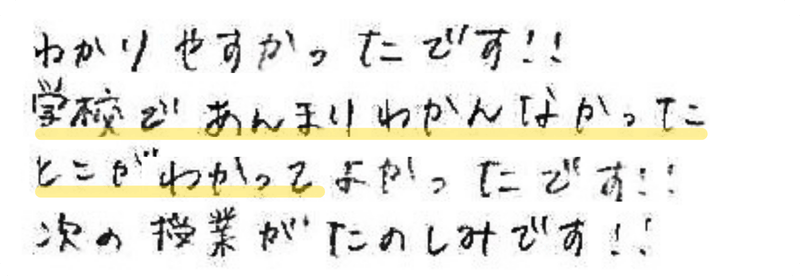 わかりやすかったです!!
学校であんまりわかんなかった
とこがわかってよかったです!!
次の授業がたのしみです!!